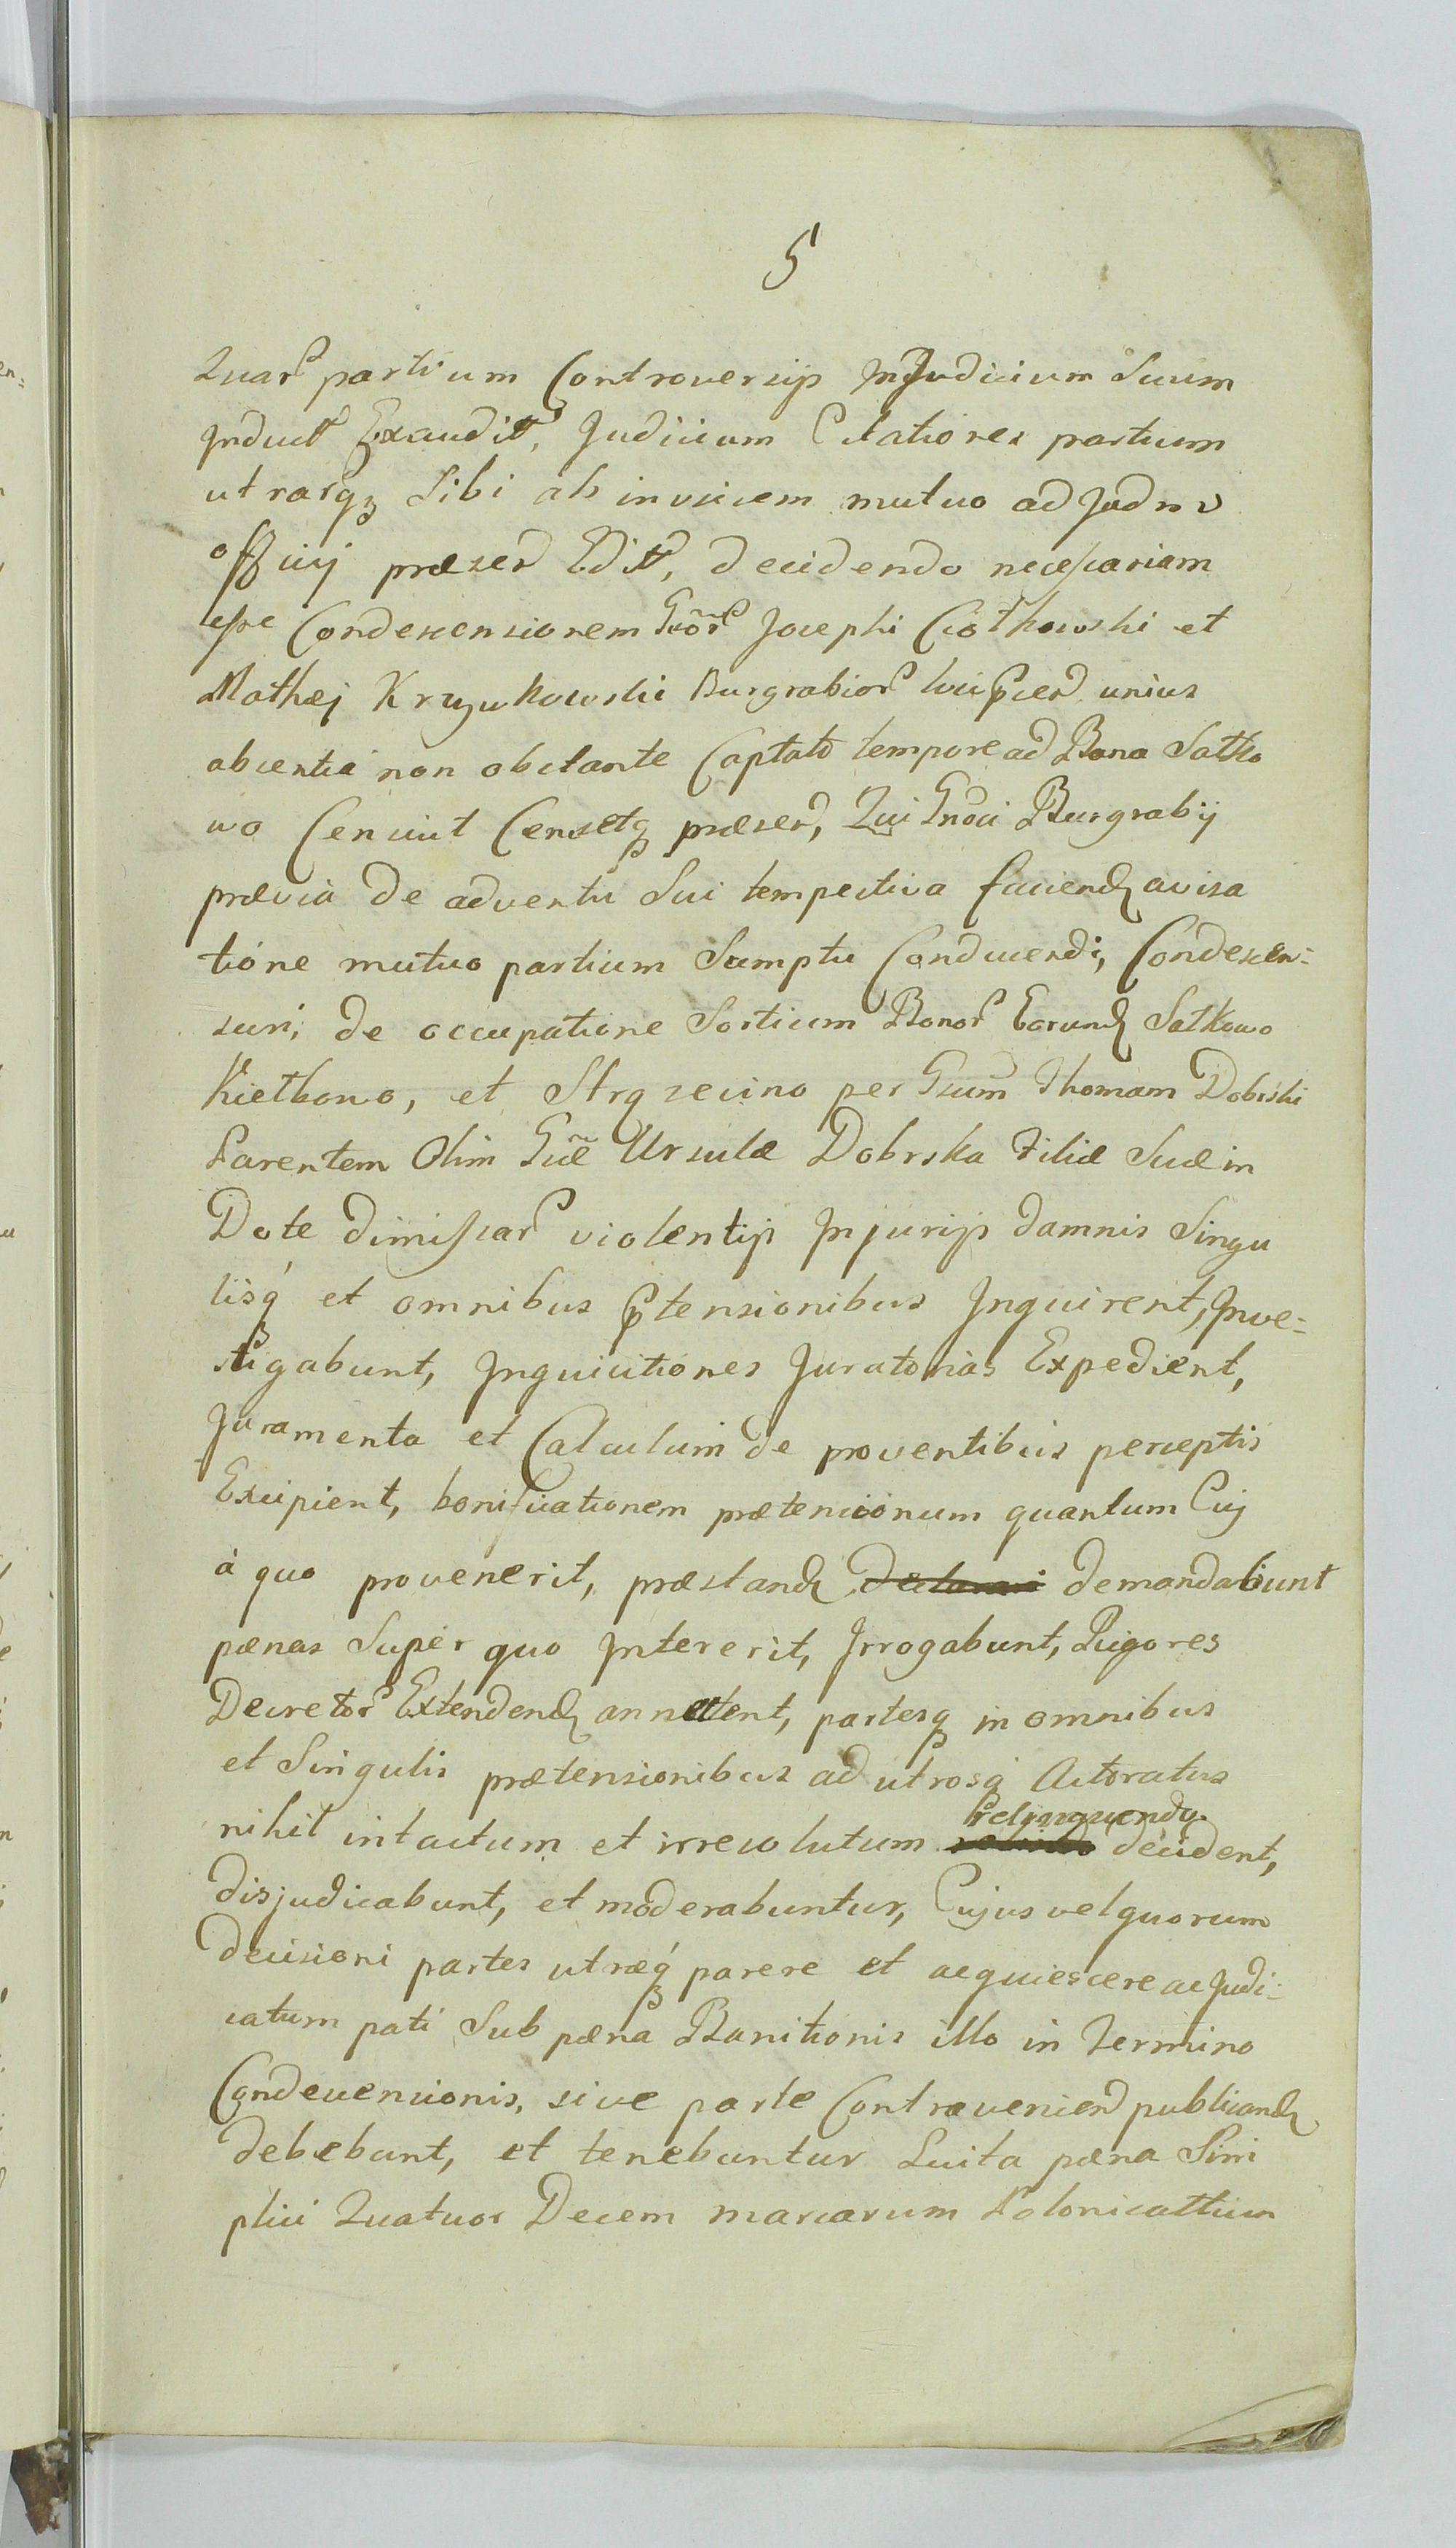 5
Quar partium Controversijs In Judicium Suum
Induct Exaudit, Judicium Citationes partium
utrarq sibi ab invicem mutuo ad Jud
officij præsen Edit, decidendo necessariam
esse Condescensionem Gnor Josephi Ciołkowski et
Mathæj Kruzukowski Burgrabior unius
absentia non obstante Captato tempore ad Bona Satko
wo Censuit Censetq præsen, Qui Gnosi Burgrabij
prævia de adventu Sui tempestiva faciend avisa
tione mutuo partium Sumptu Conducendi, Condescen=
suri, de occupatione Sortium Bonor Eorund Satkowo
Kiełkowo, et Strqzecino per Gsum Thomam Dobrski
Parentem Olim Gsæ Ursulæ Dobrska Filiæ Suæ in
Dote dimissar violentijs Injurijs damnis Singu
lisq et omnibus ptensionibus Inquirent, Inve=
stigabunt, Inquisitiones Juratorias Expedient,
Juramenta et Calculum de proventibus perceptis
Excipient, bonificationem prætensionum quantum Cuj
à quo provenerit, præstand demandabunt
pænas Super quo Intererit, Irrogabunt, Rigores
Decretor Extendend annectent, partesq in omnibus
et Singulis prætensionibus ad utrosq Actoratus
nihil intactum et irresolutum relinquendo decident,
disjudicabunt, et moderabuntur, Cujus vel quorum
decisioni partes utræq parere et acquiescere ac Judi=
catum pati Sub pæna Banitionis illo in Termino
Condescensionis, sive parte Contravenien publicand
debebunt, et tenebuntur Luita pæna Sim
plici Quatuor Decem marcarum Polonicalium